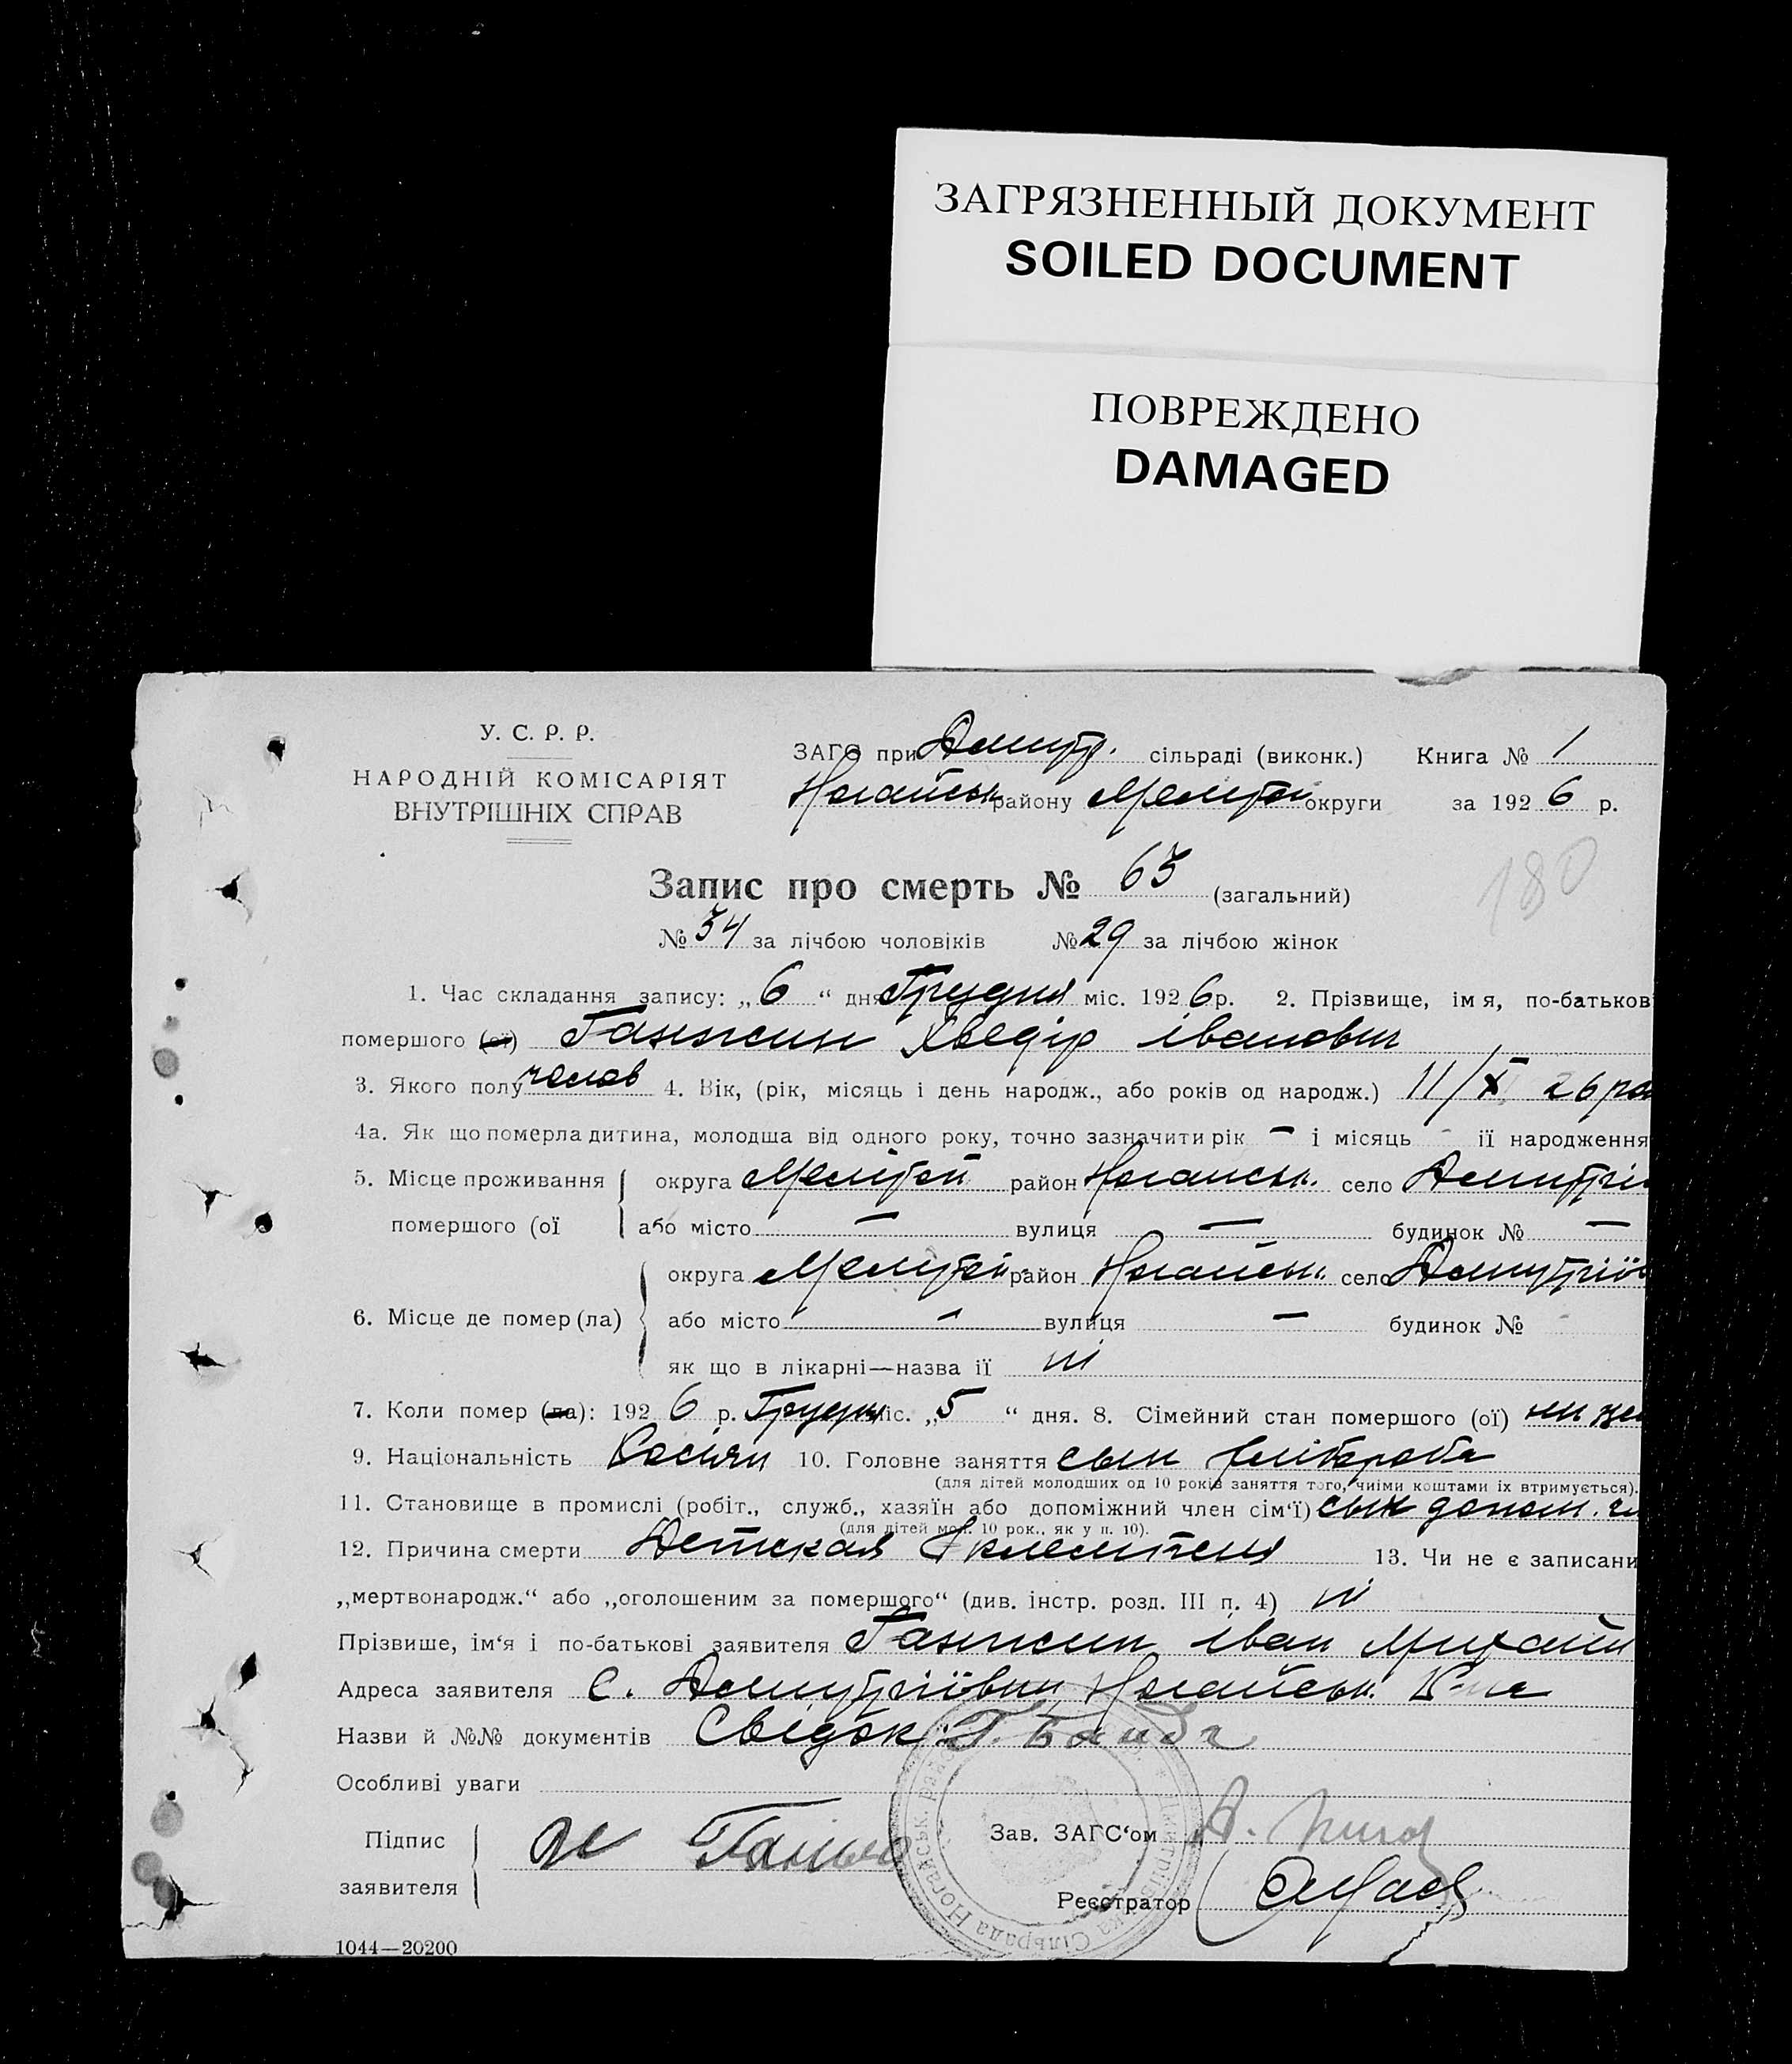 ЗАГРЯЗНЕННЫЙ ДОКУМЕНТ
SOILED DOCUMENT
ПОВРЕЖДЕНО
DAMAGED
У. С. Р. Р.
НАРОДНІЙ КОМІСАРІЯТ
ВНУТРІШНІХ СПРАВ
ЗАГС при Дмитр. сільраді (виконк.) Книга № 1
Ногайськ району Меліт округи за 192 6 р.
180
Запис про смерть № 63 (загальний)
№ 34 за лічбою чоловіків № 29 за лічбою жінок
1. Час складання запису: „ 6 “ дня Грудня міс. 192 6 р. 2. Прізвище, ім я, по-батьков
помершого (ої) Ганжин Хведір Іванович
3. Якого полу чолов 4. Вік, (рік, місяць і день народж., або років од народж.) 11/X 26 ро
4а. Як що померла дитина, молодша від одного року, точно зазначити рік – і місяць - ії народження
5. Місце проживання округа Меліт район Ногайськ. село Дмитрі
помершого (ої або місто — вулиця — будинок № —
округа Меліт район Ногайськ. село Дмитріїв
6. Місце де помер (ла) або місто - вулиця — будинок №
як що в лікарні—назва її ні
7. Коли помер (ла): 192 6 р. Грудн міс. „ 5 “ дня. 8. Сімейний стан помершого (ої)
9. Національність Росіян 10. Головне заняття сын хлібороба
(для дітей молодших од 10 років заняття того, чиїми коштами їх втримується).
11. Становище в промислі (робіт., служб., хазяїн або допоміжний член сім‘ї) сын допом. чл
(для дітей мол. 10 рок., як у п. 10).
12. Причина смерти Детская 13. Чи не є записани
„мертвонародж.“ або „оголошеним за помершого“ (див. інстр. розд. III п. 4) ні
Прізвише, ім‘я і по-батькові заявителя Ганжин Іван Михайл
Адреса заявителя С. Дмитріївки Ногайськ. Р-на
Назви й №№ документів Свідок:
Особливі уваги
Підпис
заявителя
Зав. ЗАГС‘ом
Реєстратор
1044—20200